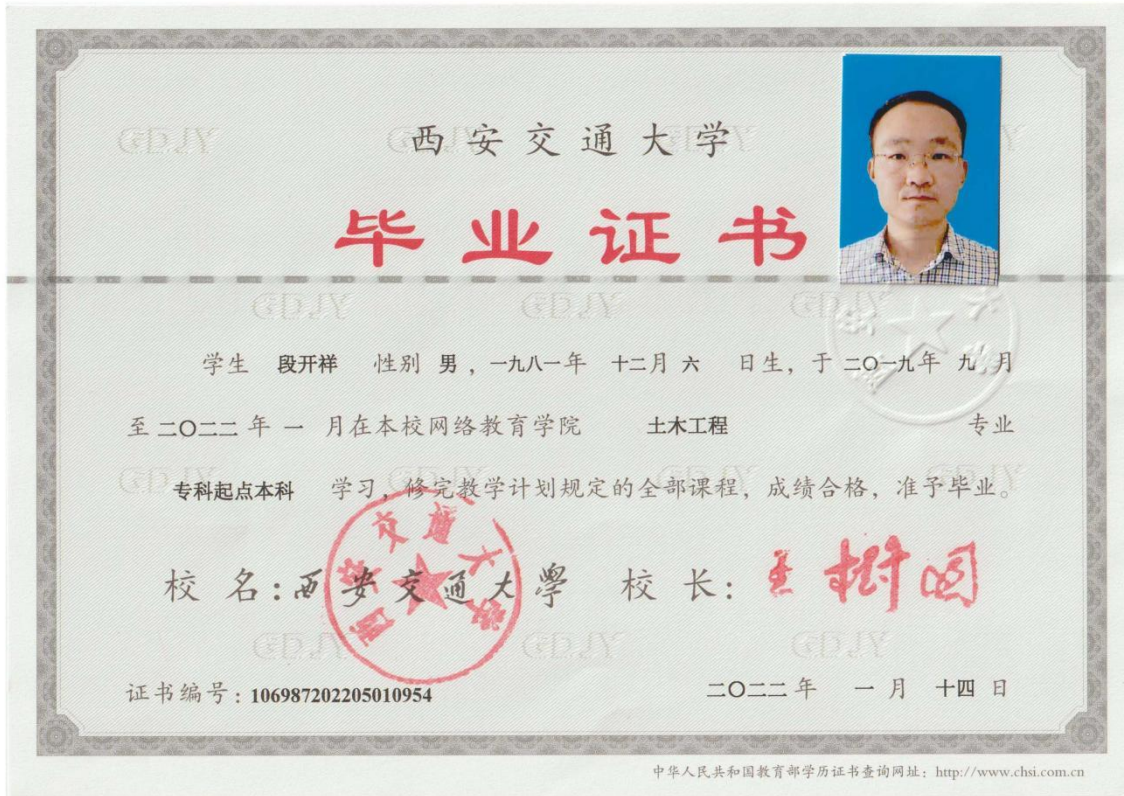 西安交通大学
毕业证书
GDJY GDJY GDJY
学生 段开祥 性别 男，一九八一年 十二月 六 日生，于 二〇一九年 九 月
至 二〇二二 年 一 月在本校网络教育学院 土木工程 专业
专科起点本科 学习，修完教学计划规定的全部课程，成绩合格，准予毕业。
西安交通大学
校 名：西安交通大學 校 长：王树国
GDJY GDJY GDJY
证书编号：106987202205010954 二〇二二 年 一 月 十四 日
中华人民共和国教育部学历证书查询网址：http://www.chsi.com.cn